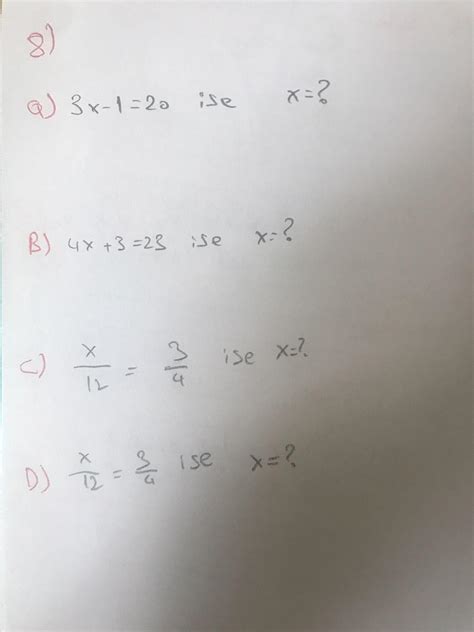 8)
a) 3x-1=20 ise x=?
B) 4x+3=23 ise x=?
C) x/12 = 3/4 ise x=?
D) x/12 = 3/4 ise x=?